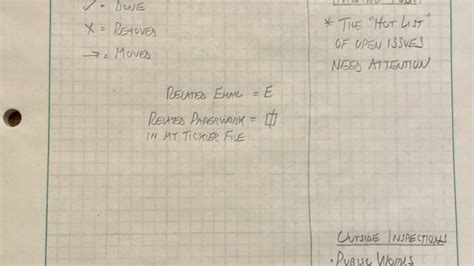 ✓ = DONE
X = REMOVED
→ = MOVED
RELATED EMAIL = E
RELATED PAPERWORK =
IN MY TICKLER FILE
* THE "HOT LIST"
OF OPEN ISSUES
NEED ATTENTION
OUTSIDE INSPECTIONS
• PUBLIC WORKS